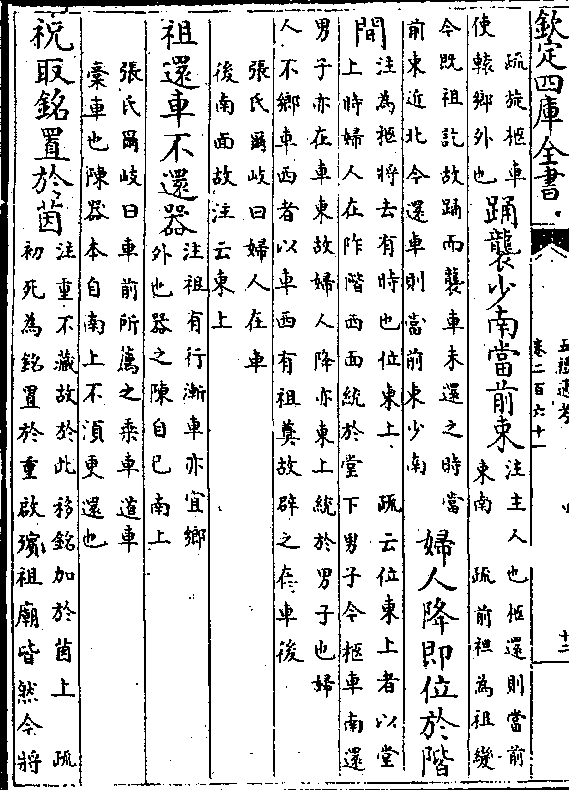 欽定四庫全書
五禮通考
卷二百六十
十二
疏旋柩車
使轅鄉外也
踊襲少南當前束
注主人也柩還則當前
束南 疏前袒為祖變
今既祖訖故踊而襲車未還之時當
前束近北今還車則當前束少南
婦人降即位於階
間
注為柩將去有時也位東上 疏云位東上者以堂
上時婦人在阼階西面統於堂下男子今柩車南還
男子亦在車東故婦人降亦東上統於男子也婦
人不鄉車西者以車西有祖奠故辟之在車後
張氏爾岐曰婦人在車
後南面故注云東上
祖還車不還器
注祖有行漸車亦宜鄉
外也器之陳自已南上
張氏爾岐曰車前所薦之乘車道車
槀車也陳器本自南上不須更還也
祝取銘置於茵
注重不藏故於此移銘加於茵上 疏
初死為銘置於重啟殯祖廟皆然今將